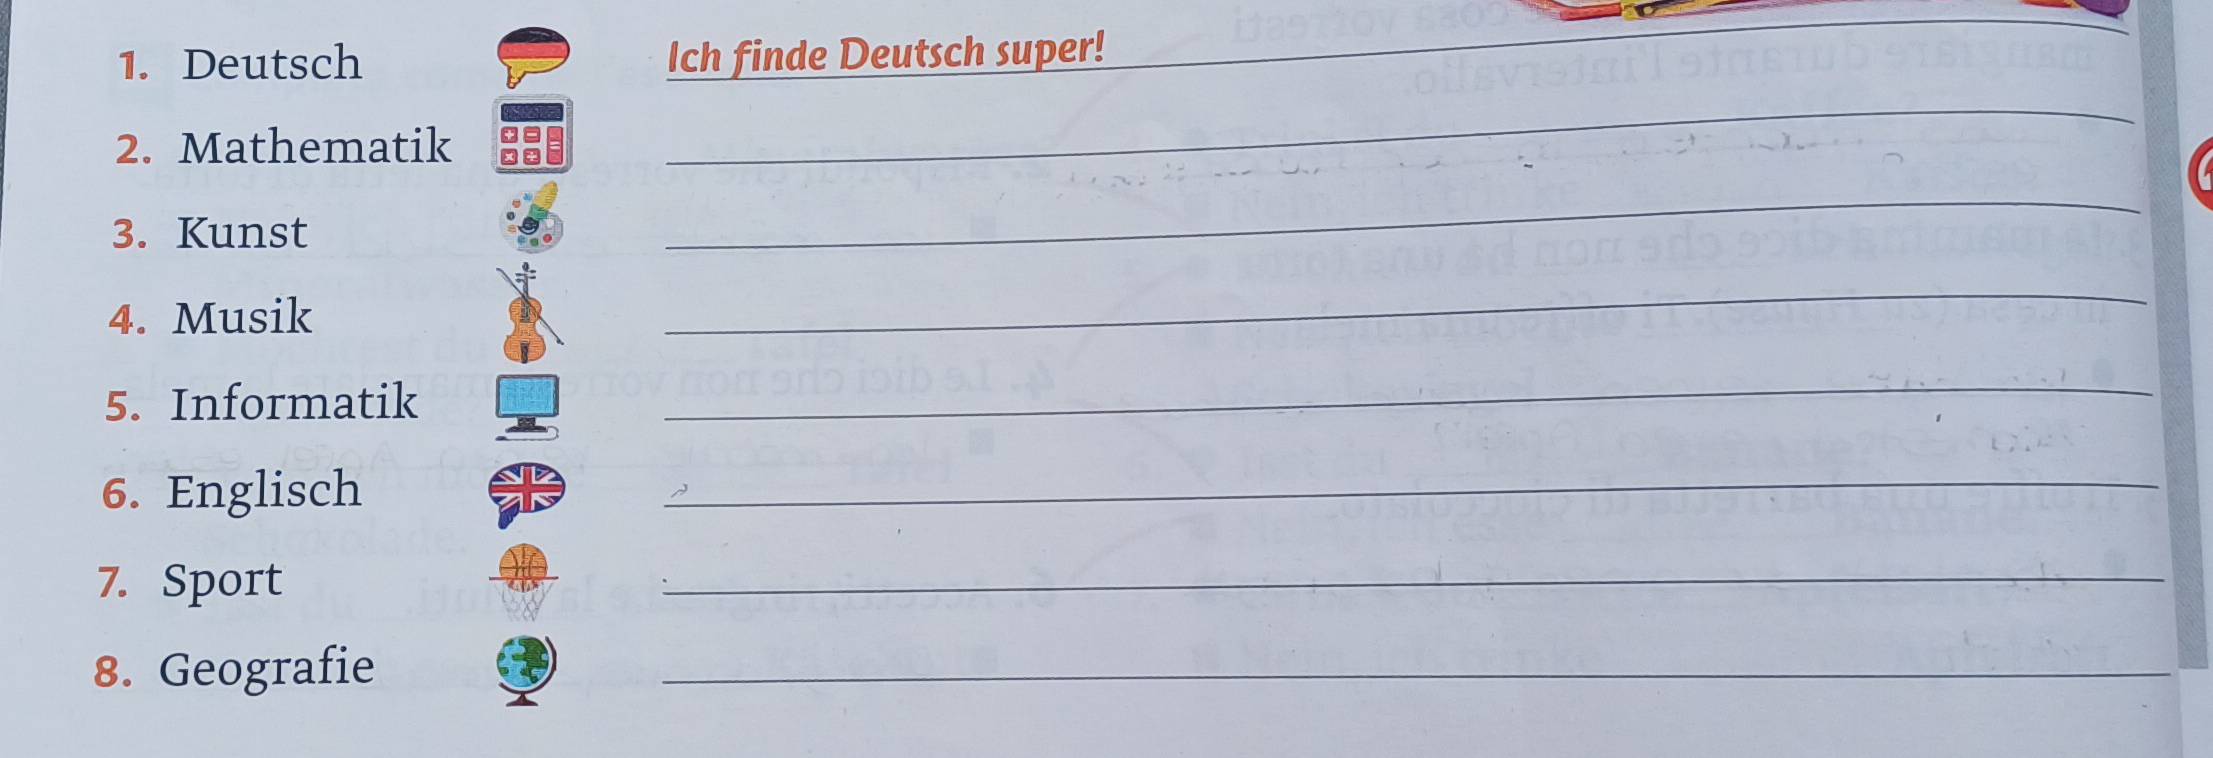 1. Deutsch Ich finde Deutsch super!
2. Mathematik
3. Kunst
4. Musik
5. Informatik
6. Englisch
7. Sport
8. Geografie